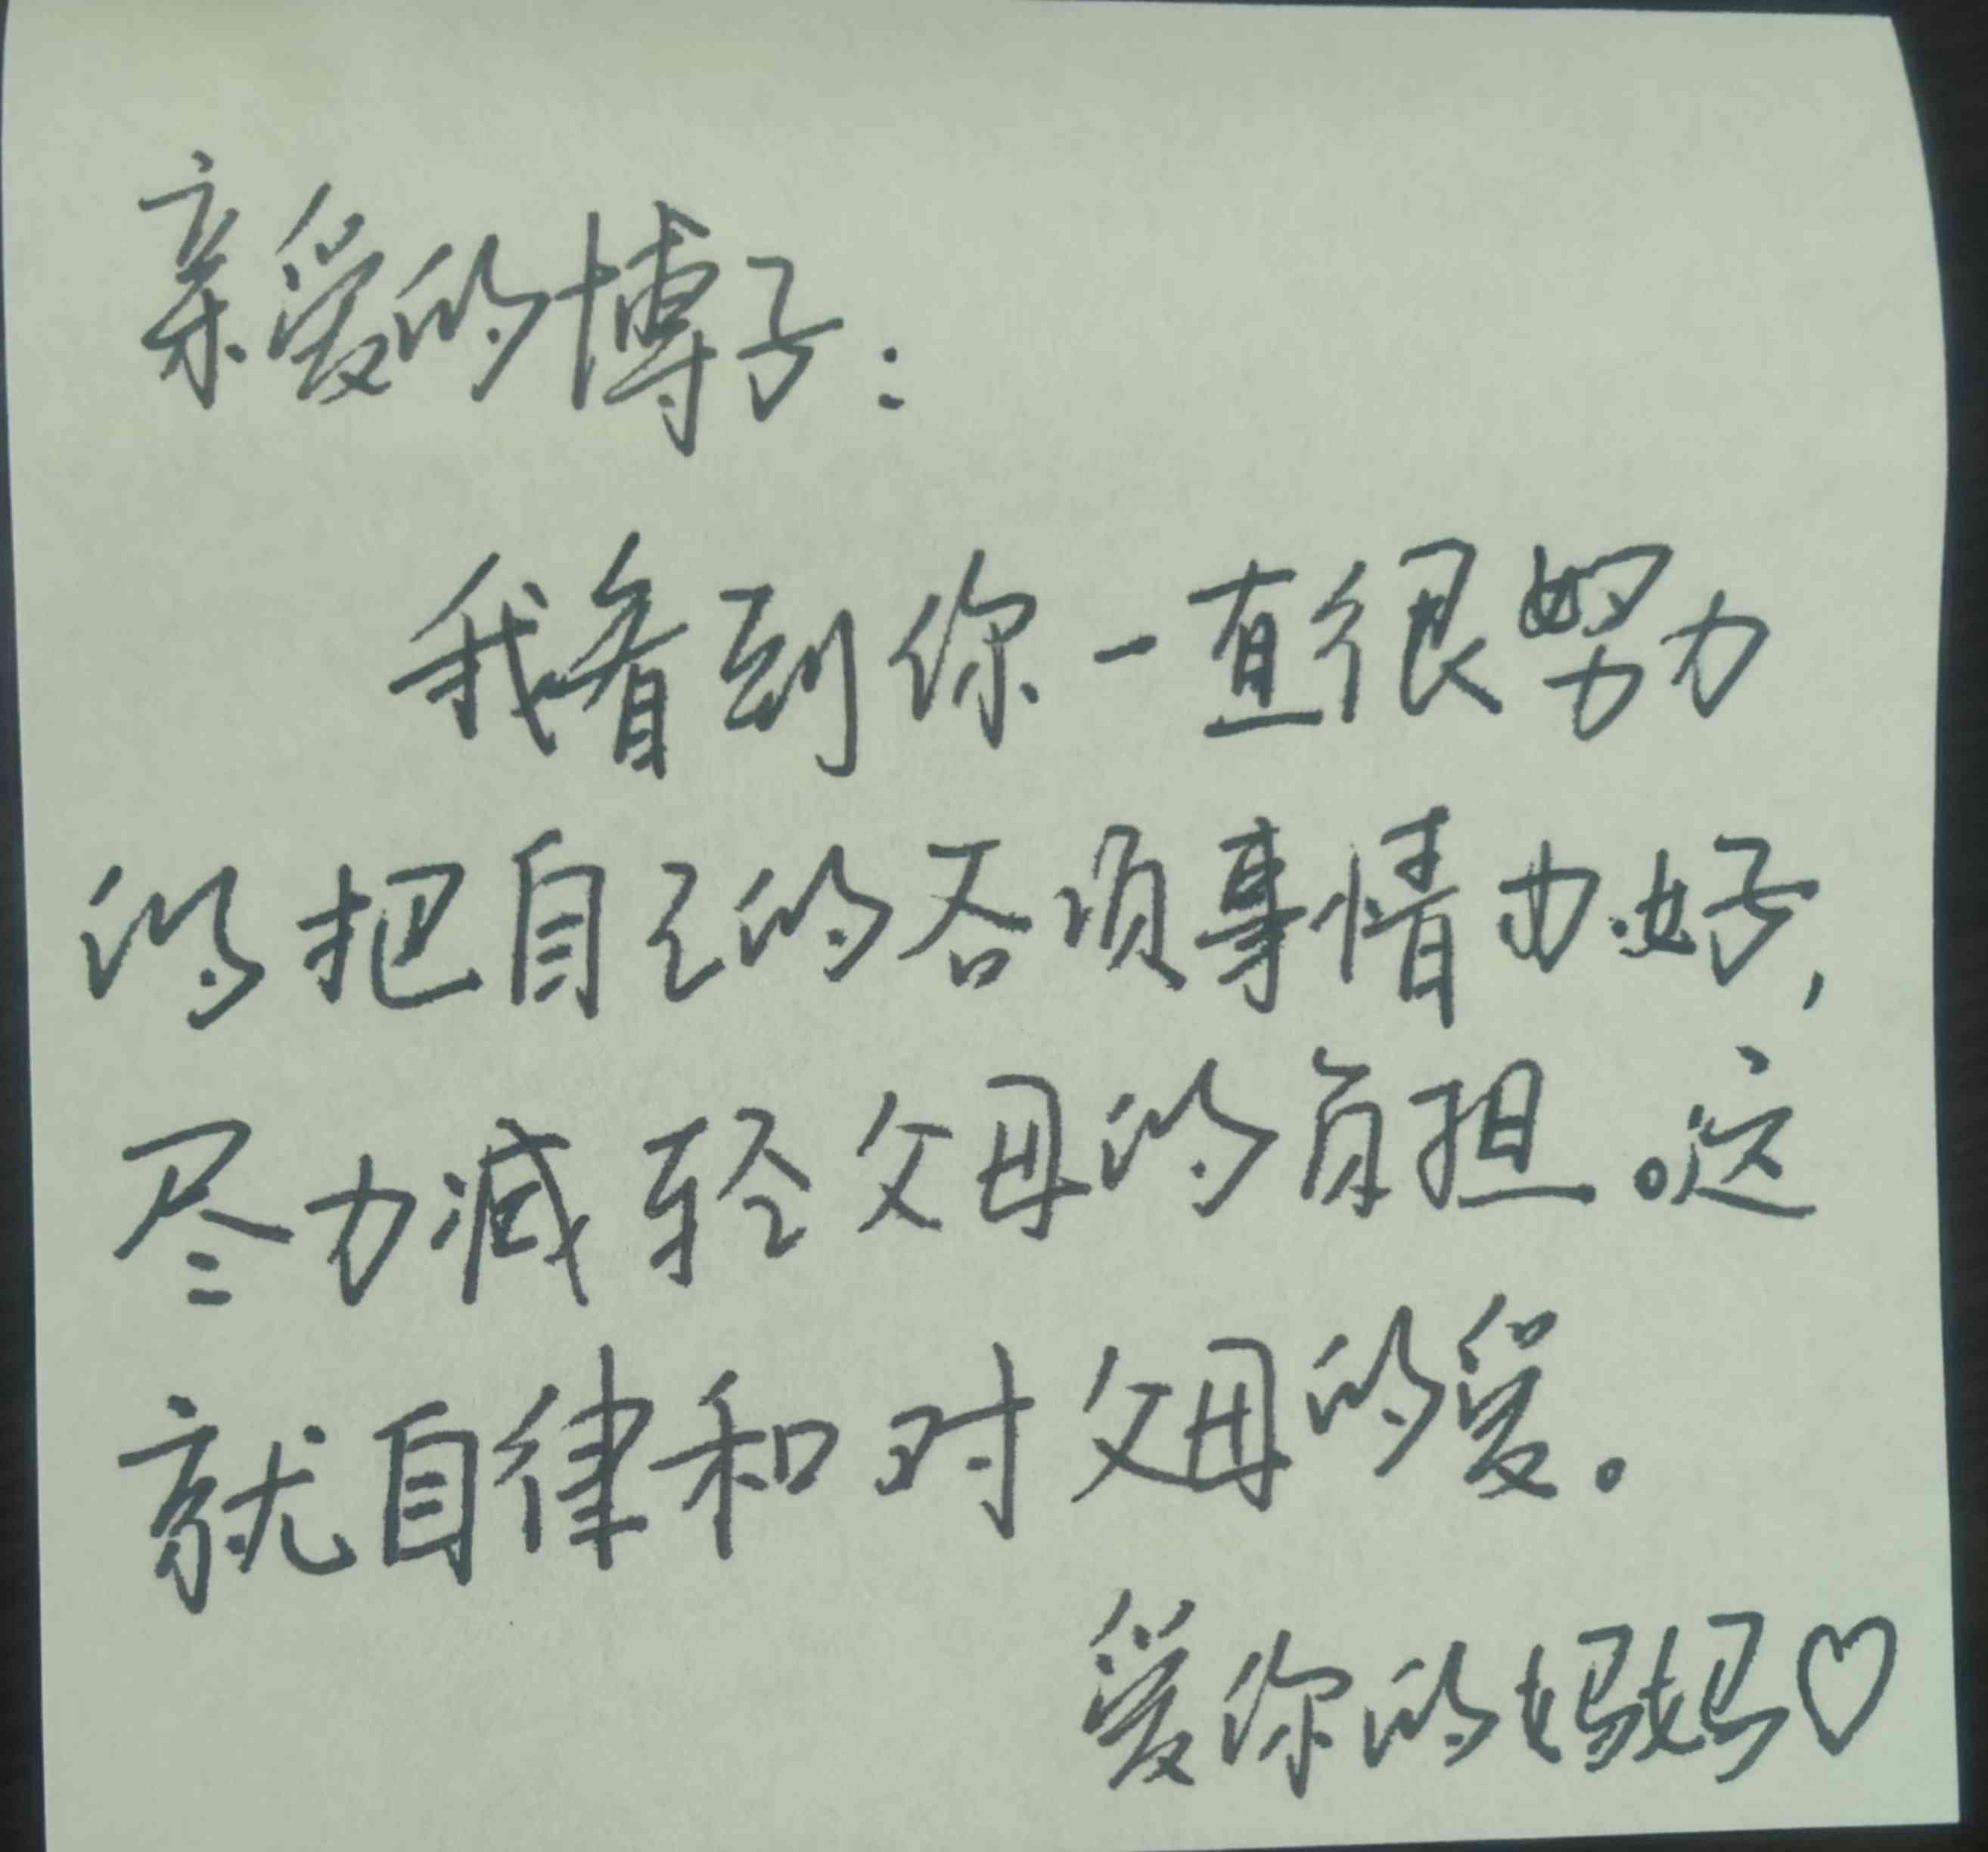 亲爱的博子:
我看到你一直很努力
的把自己的各项事情办好,
尽力减轻父母的负担。这
就自律和对父母的爱。
爱你的妈妈♡